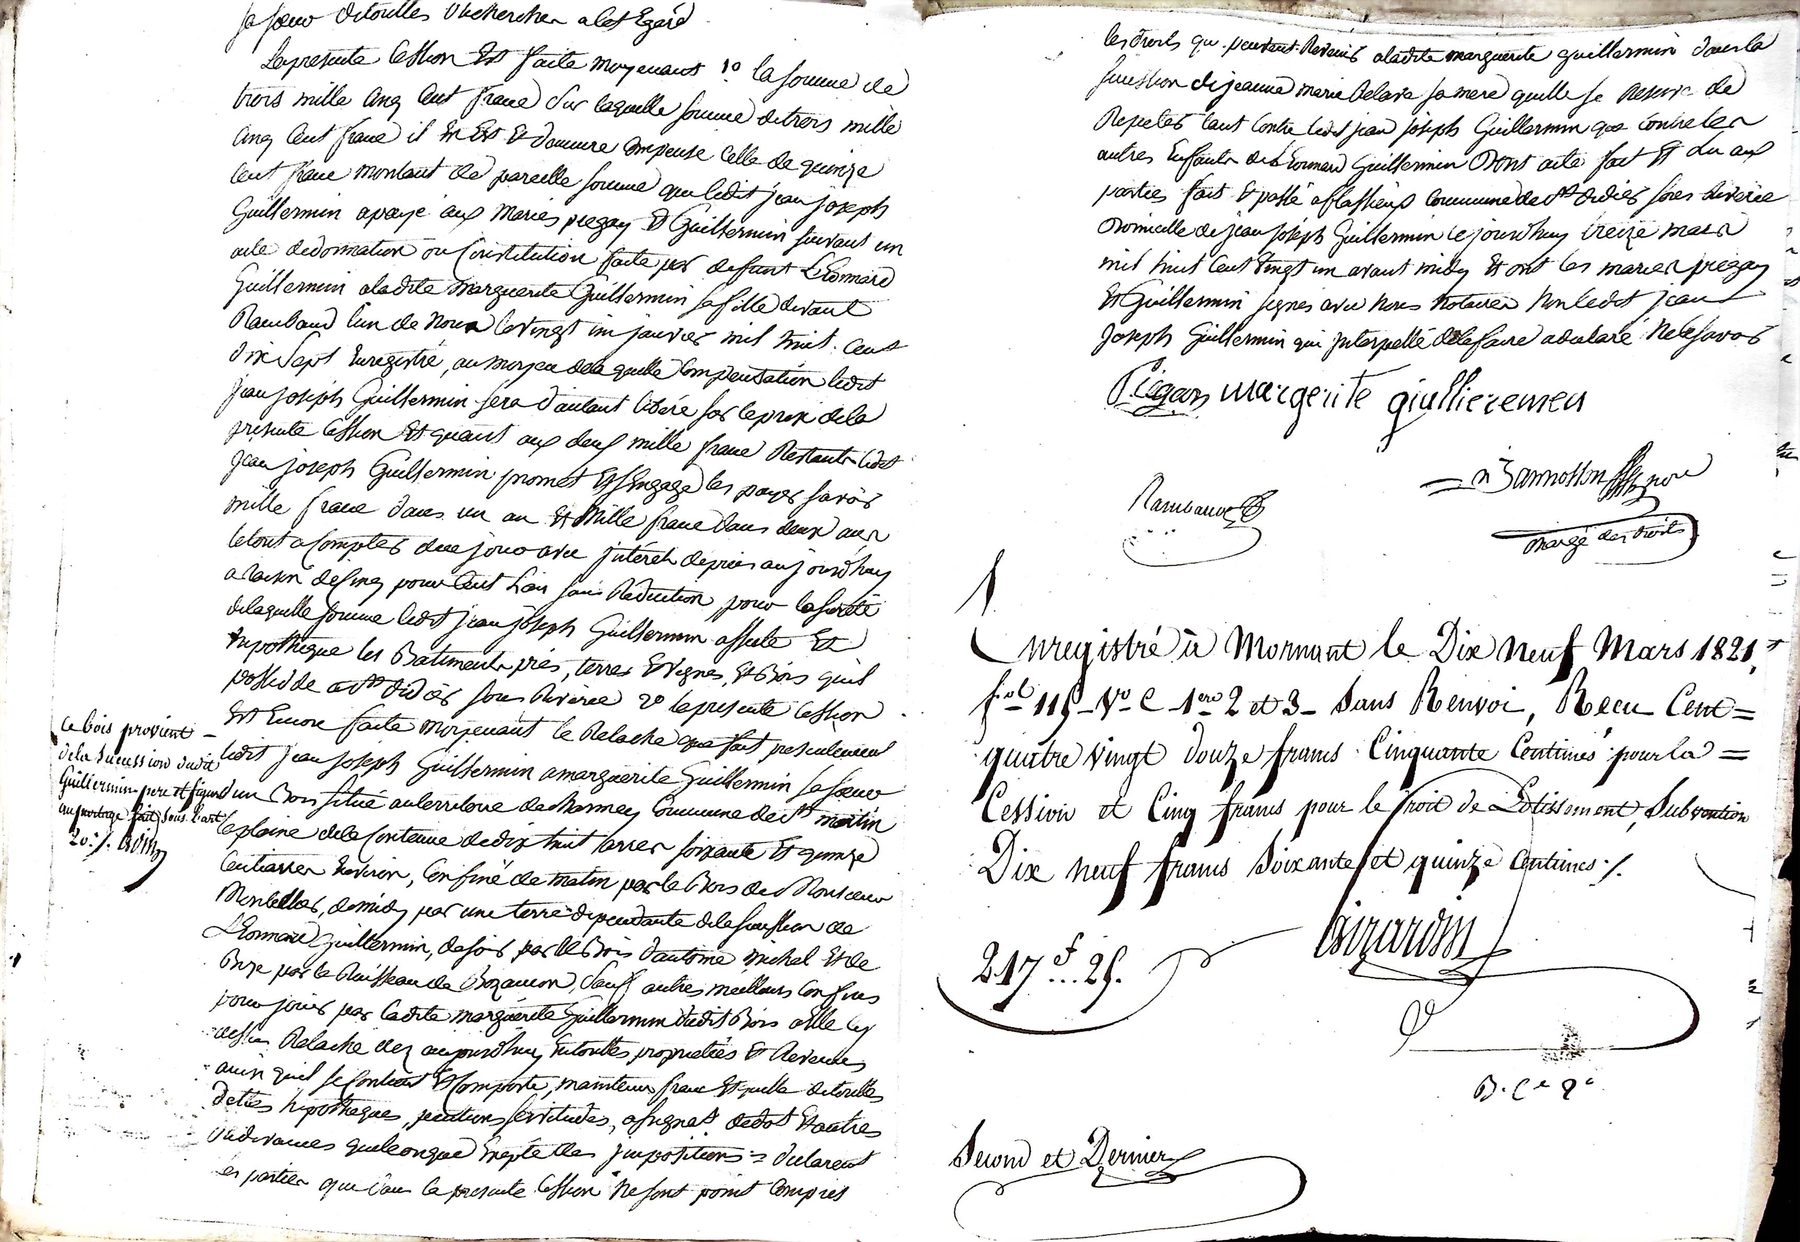 sa sœur de toutes Rechercher a cet Egard
La presente Cession Est faite moyenant 1º la somme de
trois mille cinq Cent franc sur laquelle somme de trois mille
cinq Cent franc il En Est Et demeure compensé celle de quinze
Cent franc montant de pareille somme que ledit jean joseph
Guillermin a payé aux mariés piegay Et Guillermin suivant un
acte de donnation ou Constitution faite par defunt Léonnard
Guillermin a ladite marguerite Guillermin sa fille devant
Raimbaud l'un de Nous le vingt un janvier mil huit Cent
dix Sept Enregistré, au moyen de laquelle Compensation ledit
jean joseph Guillermin sera d'autant libéré sur le prix de la
presente Cession Et quant aux deux mille franc Restants ledit
jean joseph Guillermin promet Et s'engage les payer savoir
mille franc dans un an Et Mille franc dans deux ans
le tout a Compter de ce jour avec jnterêt depuis aujourd'huy
a raison de Cinq pour Cent l'an sans Reduction pour la sureté
de laquelle somme ledit jean joseph Guillermin affecte Et
hypotheque les Batiments, prés, terres Et vignes, Et Bois qu'il
possede a St didier sous Riverie 2º la presente Cession
Est Encore faite moyenant le Relache que fait presentement
ledit jean joseph Guillermin a marguerite Guillermin sa sœur
d'un Bois situé au territoire de Commune de St martin
la plaine de la Contenue de dix huit arres soixante Et quinze
Centiarres Environ, Confiné de matin par le Bois de Monsieur
de midy par une terre dependante de la succession de
Léonnard Guillermin, de soir par le Bois d'antoine michel Et de
Bize par le Ruisseau de Bozancon, Sauf autres meilleurs Confins
pour jouir par ladite marguerite Guillermin dudit Bois a Elle cy
dessus Relaché dez aujourd'huy En toutes proprietés Et Revenus
ainsi qu'il se Contient Et Comporte, maintenu franc Et quitte de toutes
dettes hipotheques, pentions, servitudes, de dot Et autres
redevances quelconque Excepté les jmpositions = declarent
les parties que dans la presente Cession Ne sont point Compris
Ce bois provient
de la Succession dudit
Guillermin pere et figure
au partage fait sous l'art
20 %
les droits qui peuvent Revenir a ladite marguerite guillermin dans la
succession de jeanne marie Delara sa mere qu'elle se Reserve de
Repeter tant Contre ledit jean joseph Guillermin que contre les
autres Enfants de Léonnard Guillermin Dont acte fait Et Lu aux
parties fait Et passé a flassieux Commune de St didier sous Riverie
Domicille de jean joseph Guillermin le jourd'huy treize mars
mil huit Cent Vingt un avant midy Et ont les mariés piegay
Et Guillermin signés avec Nous Notaires Non ledit jean
joseph Guillermin qui jnterpellé de le faire a declaré Ne le savoir
Piegay margerite giullieremen
Raimbaud
chargé des droits
Enregistré à Mornant le Dix neuf Mars 1821,
fol 115 Vº C 1ere 2 et 3 Sans Renvoi, Reçu Cent =
quatre vingt douze francs Cinquante Centimes pour la =
Cession et Cinq francs pour le Droit de Lotissement, Subvention
Dix neuf francs Soixante et quinze Centimes ./.
Girardin
217 f ... 25.
Second et Dernier